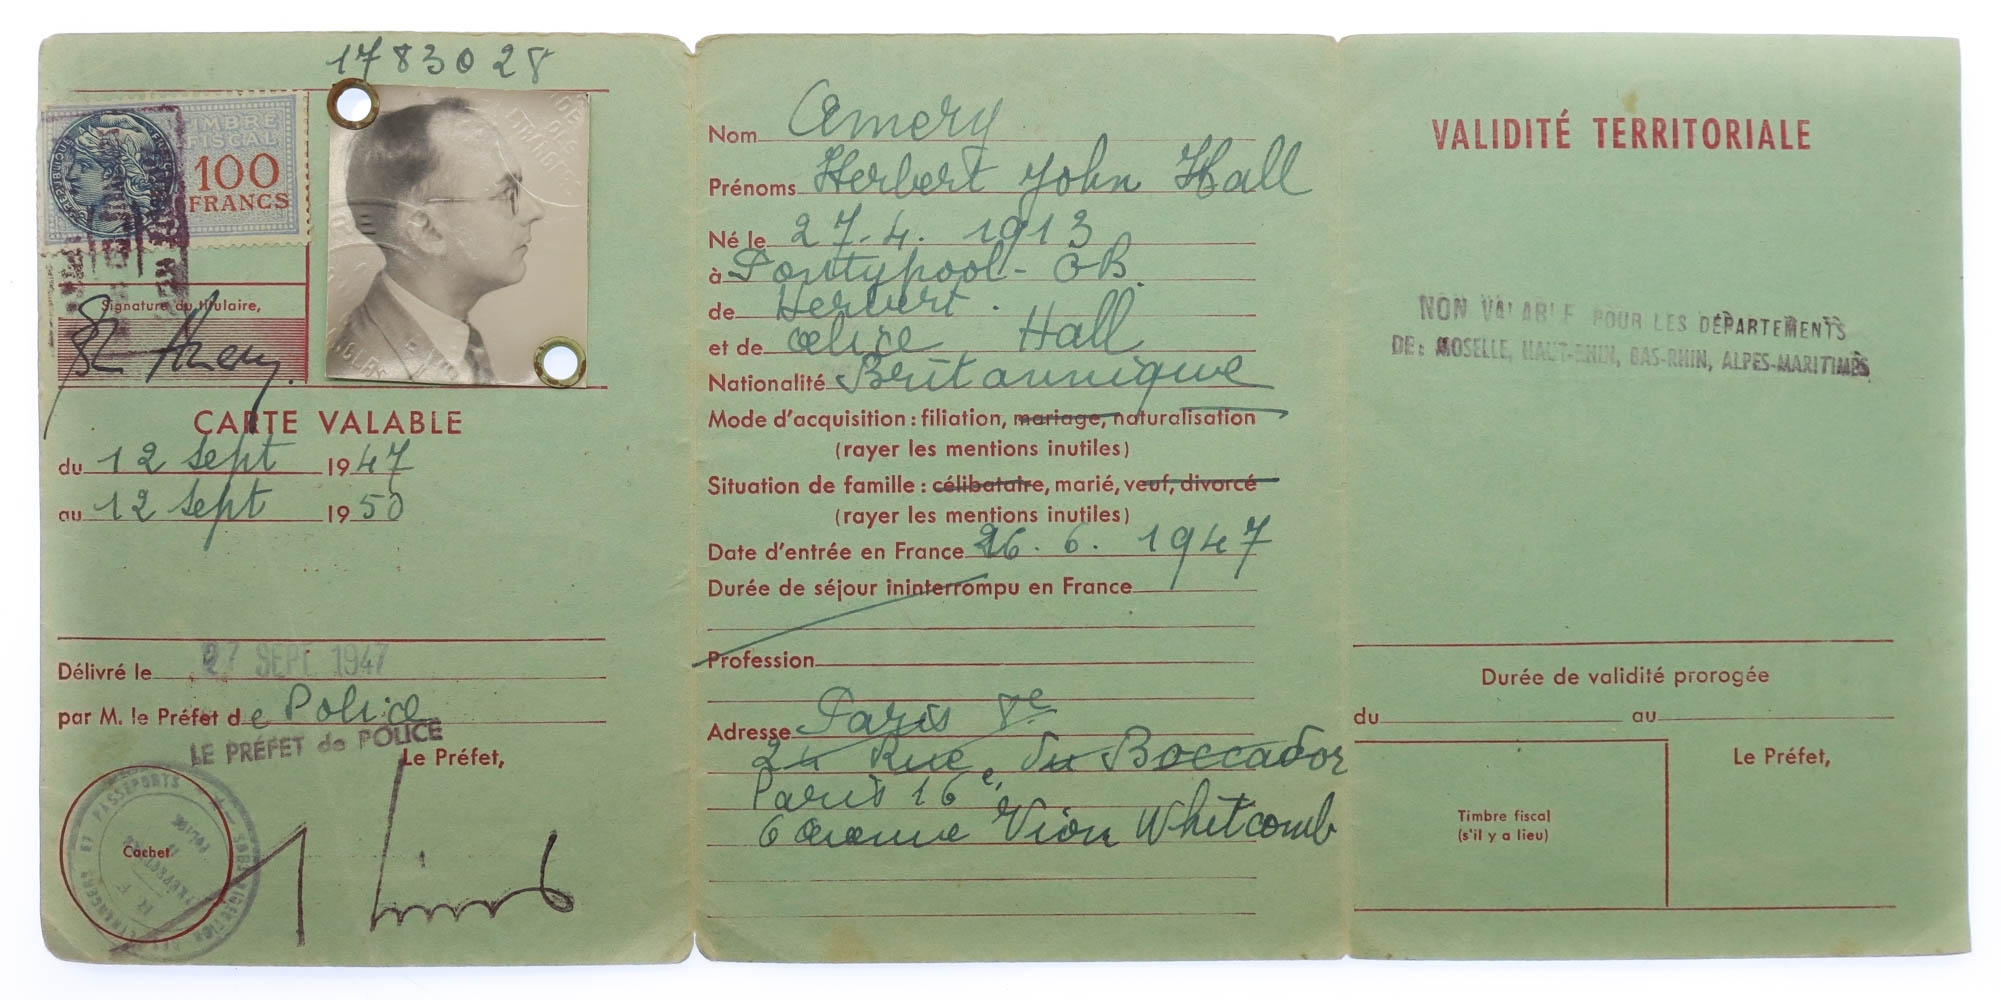 1783028
TIMBRE
FISCAL
100
FRANCS
Signature du titulaire,
CARTE VALABLE
du 12 sept 1947
au 12 sept 1950
Délivré le 27 SEPT 1947
par M. le Préfet de Police
LE PRÉFET de POLICE
Le Préfet,
Cachet
Nom Amery
Prénoms Herbert John Hall
Né le 27.4.1913
à Pontypool - GB.
de Herbert.
et de Alice Hall
Nationalité Britannique
Mode d'acquisition : filiation, mariage, naturalisation
(rayer les mentions inutiles)
Situation de famille : célibataire, marié, veuf, divorcé
(rayer les mentions inutiles)
Date d'entrée en France 26.6.1947
Durée de séjour ininterrompu en France
Profession
Adresse Paris 8e
24 Rue du Boccador
Paris 16e,
6 avenue Vion Whitcomb
VALIDITÉ TERRITORIALE
NON VALABLE POUR LES DÉPARTEMENTS
DE : MOSELLE, HAUT-RHIN, BAS-RHIN, ALPES-MARITIMES
Durée de validité prorogée
du au
Le Préfet,
Timbre fiscal
(s'il y a lieu)